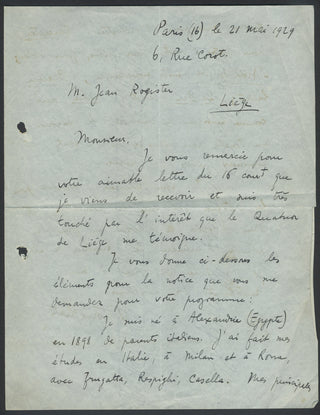 Paris (16) le 21 mai 1929
6, Rue Corot.
M. Jean Rogister
Liège
Monsieur,
Je vous remercie pour
votre aimable lettre du 16 court que
je viens de recevoir et suis très
touché par l'interêt que le Quatuor
de Liège me témoigne.
Je vous donne ci-dessous les
éléments pour la notice que vous me
demandez pour votre programme:
Je suis né à Alexandrie (Egypte)
en 1898 de parents italiens. J'ai fait mes
études en Italie, à Milan et à Rome,
avec Frugatta, Respighi, Casella. Mes principales